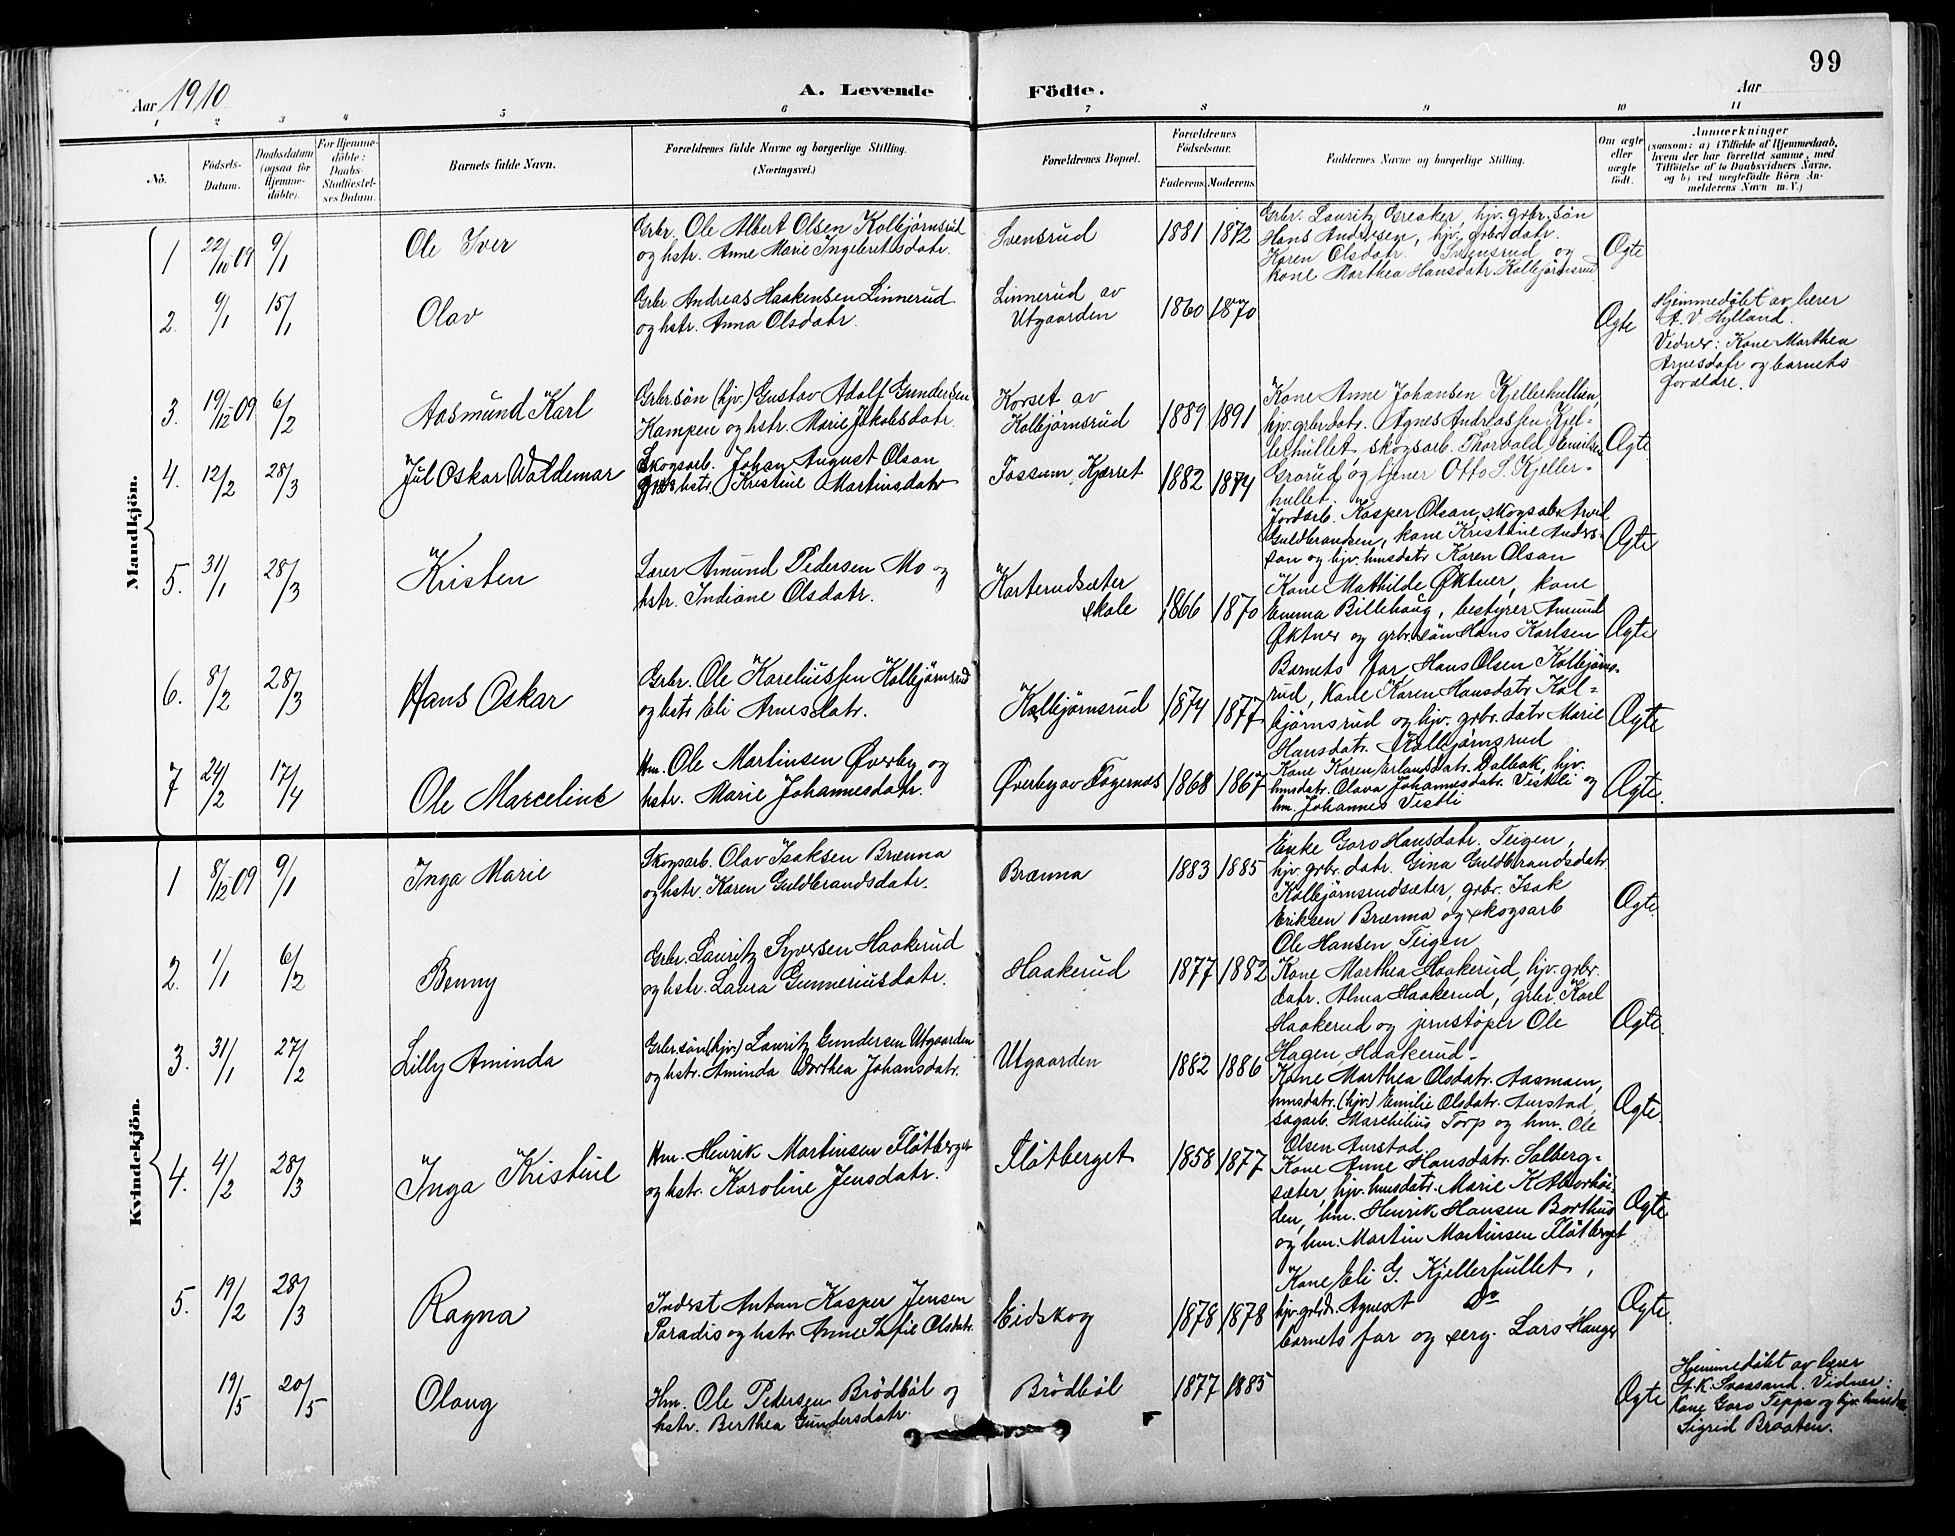 99
Aar 1910 A. Levende Födte. Aar
1 2 3 4 5 6 7 8 9 10 11
No. Födsels-Datum. Daabsdatum (ogsaa for Hjemme-döbte). For Hjemme-döbte: Daabs-Stadfæstel-ses Datum. Barnets fulde Navn. Forældrenes fulde Navne og borgerlige Stilling. (Næringsvei.) Forældrenes Bopæl. Forældrenes Födselsaar. Faderens Moderens Faddernes Navne og borgerlige Stilling. Om ægte eller uægte födt. Anmærkninger (saasom: a) i Tilfælde af Hjemmedaab, hvem der har forrettet samme, med Tilföielse af to Daabsvidners Navne, og b) ved uægtefödte Börn An-melderens Navn m. V.)
Mandkjön.
1 22/11 09 9/1 Ole Iver
Grbr. Ole Albert Olsen Kolbjørnsrud
og hstr. Anne Marie Ingebretsdatr.
Svensrud 1881 1872
Grbr. Lauritz Greaker, hjv. grbr. søn
Hans Andersen, hjv. grbr. datr.
Karen Olsdatr. Svensrud og
kone Marthea Hansdatr. Kolbjørnsrud
Ægte
2. 9/1 15/1 Olav
Grbr. Andreas Haakensen Linnerud
og hstr. Anna Olsdatr.
Linnerud av
Utgaarden 1860 1870
Ægte
Hjemmedøbt av lærer
A. V. Hylland.
Vidner: Kone Marthea
Arnesdatr og barnets
forældre.
3. 19/12 09 6/2 Aasmund Karl
Grbr. søn (hjv.) Gustav Adolf Gundersen
Kampen og hstr. Marie Jakobsdatr.
Korset av
Kolbjørnsrud 1889 1891
Kone Anne Johansen Kjellerhullen,
hjv. grbr. datr. Agnes Andreassen Kjel-
lerhullet, skogsarb. Thorvald Emilsen
Grorud og tjener Otto S. Kjeller-
hullet.
Ægte
4. 12/2 28/3 Jul Oskar Waldemar
Skogsarb. Johan August Olsan
og hstr. Kristine Martinsdatr
Fossum, Kjærret 1882 1874
Jordarb. Kasper Olsan, skogsabr Arvid
Guldbrandsen, kone Kristine Anders-
son og hjv. hmsdatr Karen Olsan
Ægte
5. 31/1 28/3 Kristen
Lærer Amund Pedersen Mo og
hstr. Indiane Olsdatr.
Karterudsæter
skole 1866 1870
Kone Mathilde Øktner, kone
Emma Billehaug, bestyrer Amund
Øktner og grbr. søn Hans Karlsen
Ægte
6. 8/2 28/3 Hans Oskar
Grbr. Ole Kareliussen Kolbjørnsrud
og hstr Eli Arnesdatr.
Kolbjørnsrud 1874 1877
Barnets far, Hans Olsen Kolbjørns-
rud, kone Karen Hansdatr Kol-
bjørnsrud og hjv. grbr. datr Marie
Hansdatr. Kolbjørnsrud
Ægte
7 24/2 17/4 Ole Marcelius
Hm. Ole Martinsen Øverby og
hstr. Marie Johannesdatr.
Øverby av Fagernæs 1868 1867
Kone Karen Erlandsdatr. Dalbak, hjv.
hmsdatr. Olava Johannesdatr. Vistli og
hm. Johannes Vistli
Ægte.
Kvindekjön.
1 8/12 09 9/1 Inga Marie
Skogsarb. Olav Isaksen Brænna
og hstr. Karen Guldbrandsdatr.
Brænna 1883 1885
Enke Goro Hansdatr. Teigen,
hjv. grbr. datr. Gina Guldbrandsdatr
Kolbjørnsrudsæter, grbr. Isak
Eriksen Brænna og skogsarb
Ole Hansen Teigen
Ægte.
2. 1/1 6/2 Benny
Grbr. Lauritz Syversen Haakerud
og hstr. Laura Gunneriusdatr.
Haakerud 1877 1882
Kone Marthea Haakerud, hjv. grbr.
datr. Alma Haakerud, grbr. Karl
Haakerud og jernstøper Ole
Hagen, Haakerud.
Ægte.
3. 31/1 27/2 Lilly Aminda
Grbr. søn (hjv.) Lauritz Gundersen Utgaarden
og hstr. Aminda Dorthea Johansdatr.
Utgaarden 1882 1886
Kone Marthea Olsdatr. Aasmoen,
hmsdatr. (hjv.) Emilie Olsdatr. Aurstad,
sagarb. Marthilius Torp og hm. Ole
Olsen Aurstad.
Ægte.
4. 4/2 28/3 Inga Kristine
Hm. Henrik Martinsen Fløtberget
og hstr. Karoline Jensdatr.
Fløtberget 1858 1877
Kone Anne Hansdatr. Solberg-
sæter, hjv. hmsdatr. Marie K. Aborhøi-
den, hm. Henrik Hansen Borthus
og hm. Martin Martinsen Fløtberget
Ægte
5. 19/2 28/3 Ragna
Inderst Anton Kasper Jensen
Paradis og hstr Anne Sofie Olsdatr.
Eidskog 1878 1878
Kone Eli G. Kjellerhullet,
hjv. grbrdr. Agnes A Do
barnets far og serg. Lars Hauger
Ægte.
19/5 20/5 Olaug
Hm. Ole Pedersen Brödböl og
hstr. Berthea Gundersdatr.
Brödböl 1877 1885
Ægte
Hjemmedøbt av lærer
A. K. Svaasand. Vidner:
Kone Goro Teppa og hjv. husdtr.
Sigrid Braaten.